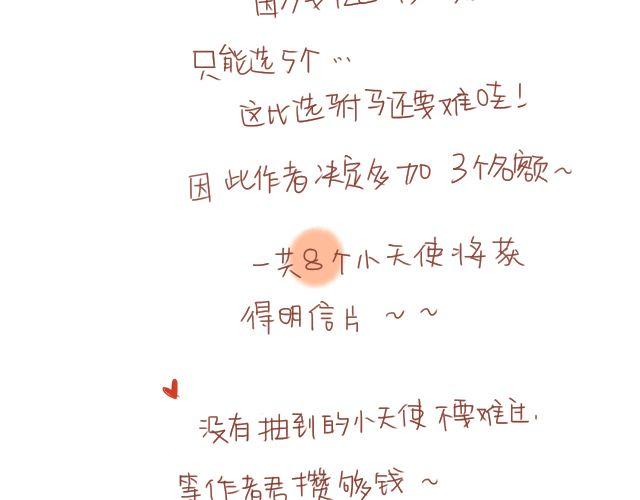 只能选5个…
这比选驸马还要难哇!
因此作者决定多加 3个名额~
一共8个小天使将获
得明信片 ~ ~
没有抽到的小天使不要难过.
等作者君攒够钱 ~